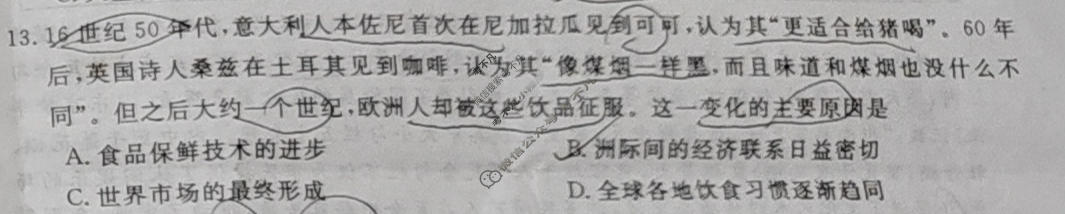 13. 16 世纪 50 年代,意大利人本佐尼首次在尼加拉瓜见到可可,认为其“更适合给猪喝”。60 年
后,英国诗人桑兹在土耳其见到咖啡,认为其“像煤烟一样黑,而且味道和煤烟也没什么不
同”。但之后大约一个世纪,欧洲人却被这些饮品征服。这一变化的主要原因是
A. 食品保鲜技术的进步 B. 洲际间的经济联系日益密切
C. 世界市场的最终形成 D. 全球各地饮食习惯逐渐趋同